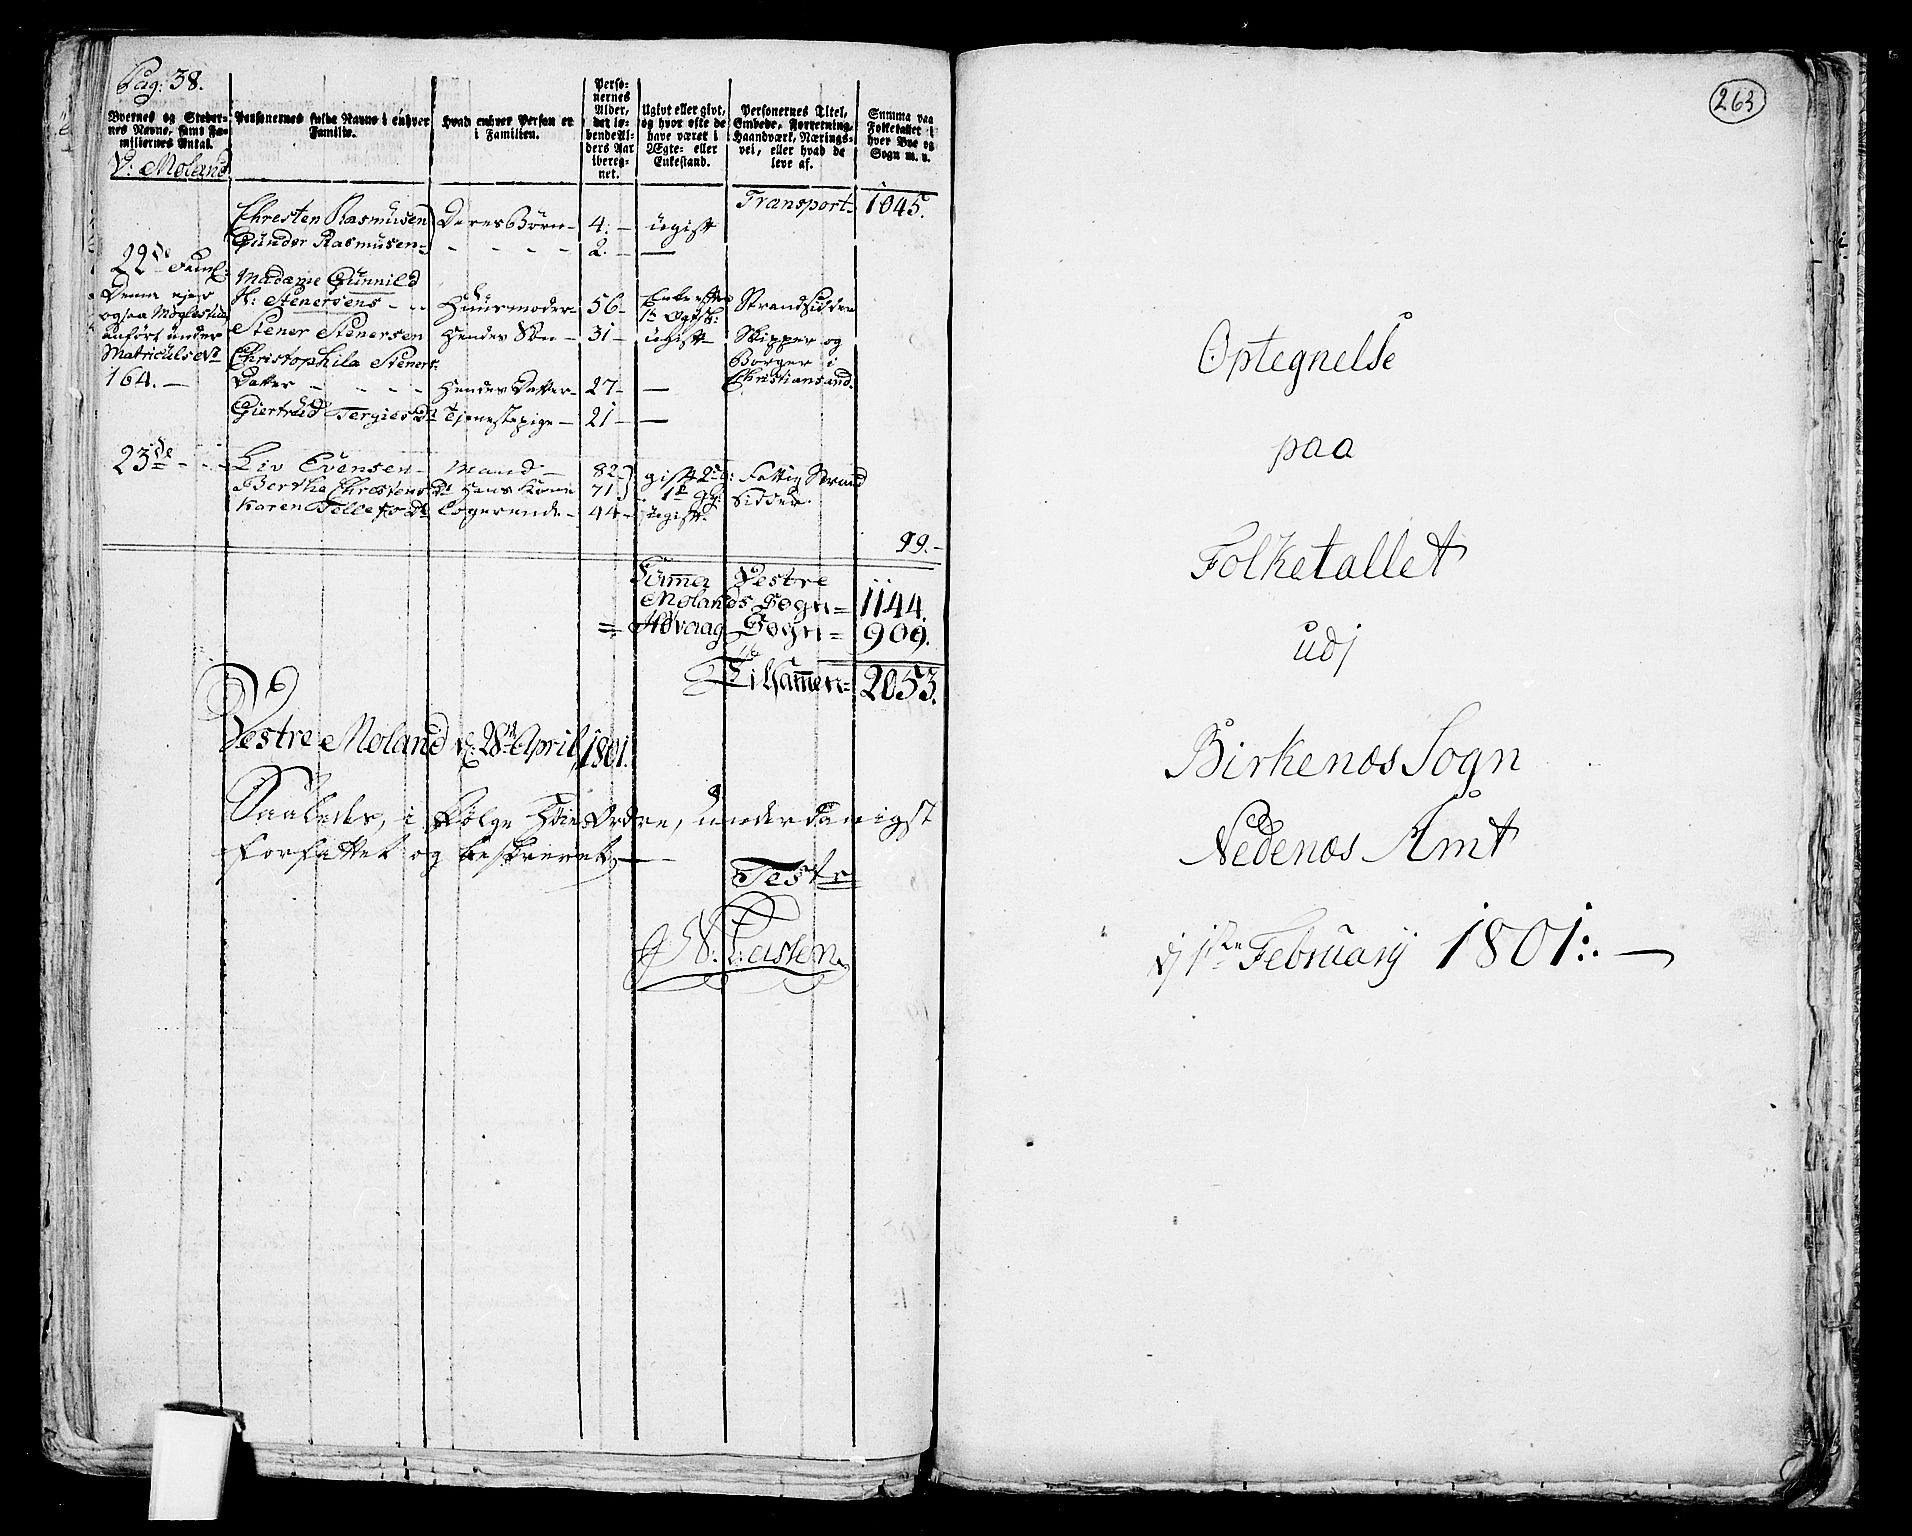 Pag: 38.
Byernes og Stedernes Navne, samt Familiernes Antal.
Personernes fulde Navne i enhver Familie.
Hvad enhver Person er i Familien.
Personernes Alder, det løbende Alders Aar iberegnet.
Ugivt eller givt, og hvor ofte de have været i Ægte- eller Enkestand.
Personernes Titel, Embede, Forretning, Haandværk, Næringsvei, eller hvad de leve af.
Summa paa Folketallet i hver Bye og Sogn m. v.
V: Moland
Transport. 1045.
Chresten Rasmusen Deres Børn 4. ugift
Gunder Rasmusen - - - 2. —
22de Famil:
Denne ejer
ogsaa
anført under
Matriculs No
164. —
Madame Gunnild
Stenersens - - Huusmoder 56 Strandsidder
Stener Stenersen Hendes Søn 31 ugift Skipper og
Borger i
Christiansand.
Christophila Steners
Datter - - - Hendes Datter 27 —
Giertrud Tergies Dr Tjenestepige 21 —
23de - - Liv Evensen Mand 82 gift 2 g: Fattig Strand
Berthe Chrestens Dr Hans Kone 71 1te g: Sidder
Karen Dr Logerende 44 ugift
99.-
Summa Vestre
Molands Sogn = 1144.
= Høvaag Sogn = 909.
Tilsammen = 2053.
Vestre Moland d: 28de April 1801.
Saaledes, i Følge Høie Ordre, underdanigst
forfattet og beskrevet —
Teste
263
Optegnelse
paa
Folketallet
udj
Birkenæs Sogn
Nedenæs Amt
dj 1ste Februarij 1801:. —